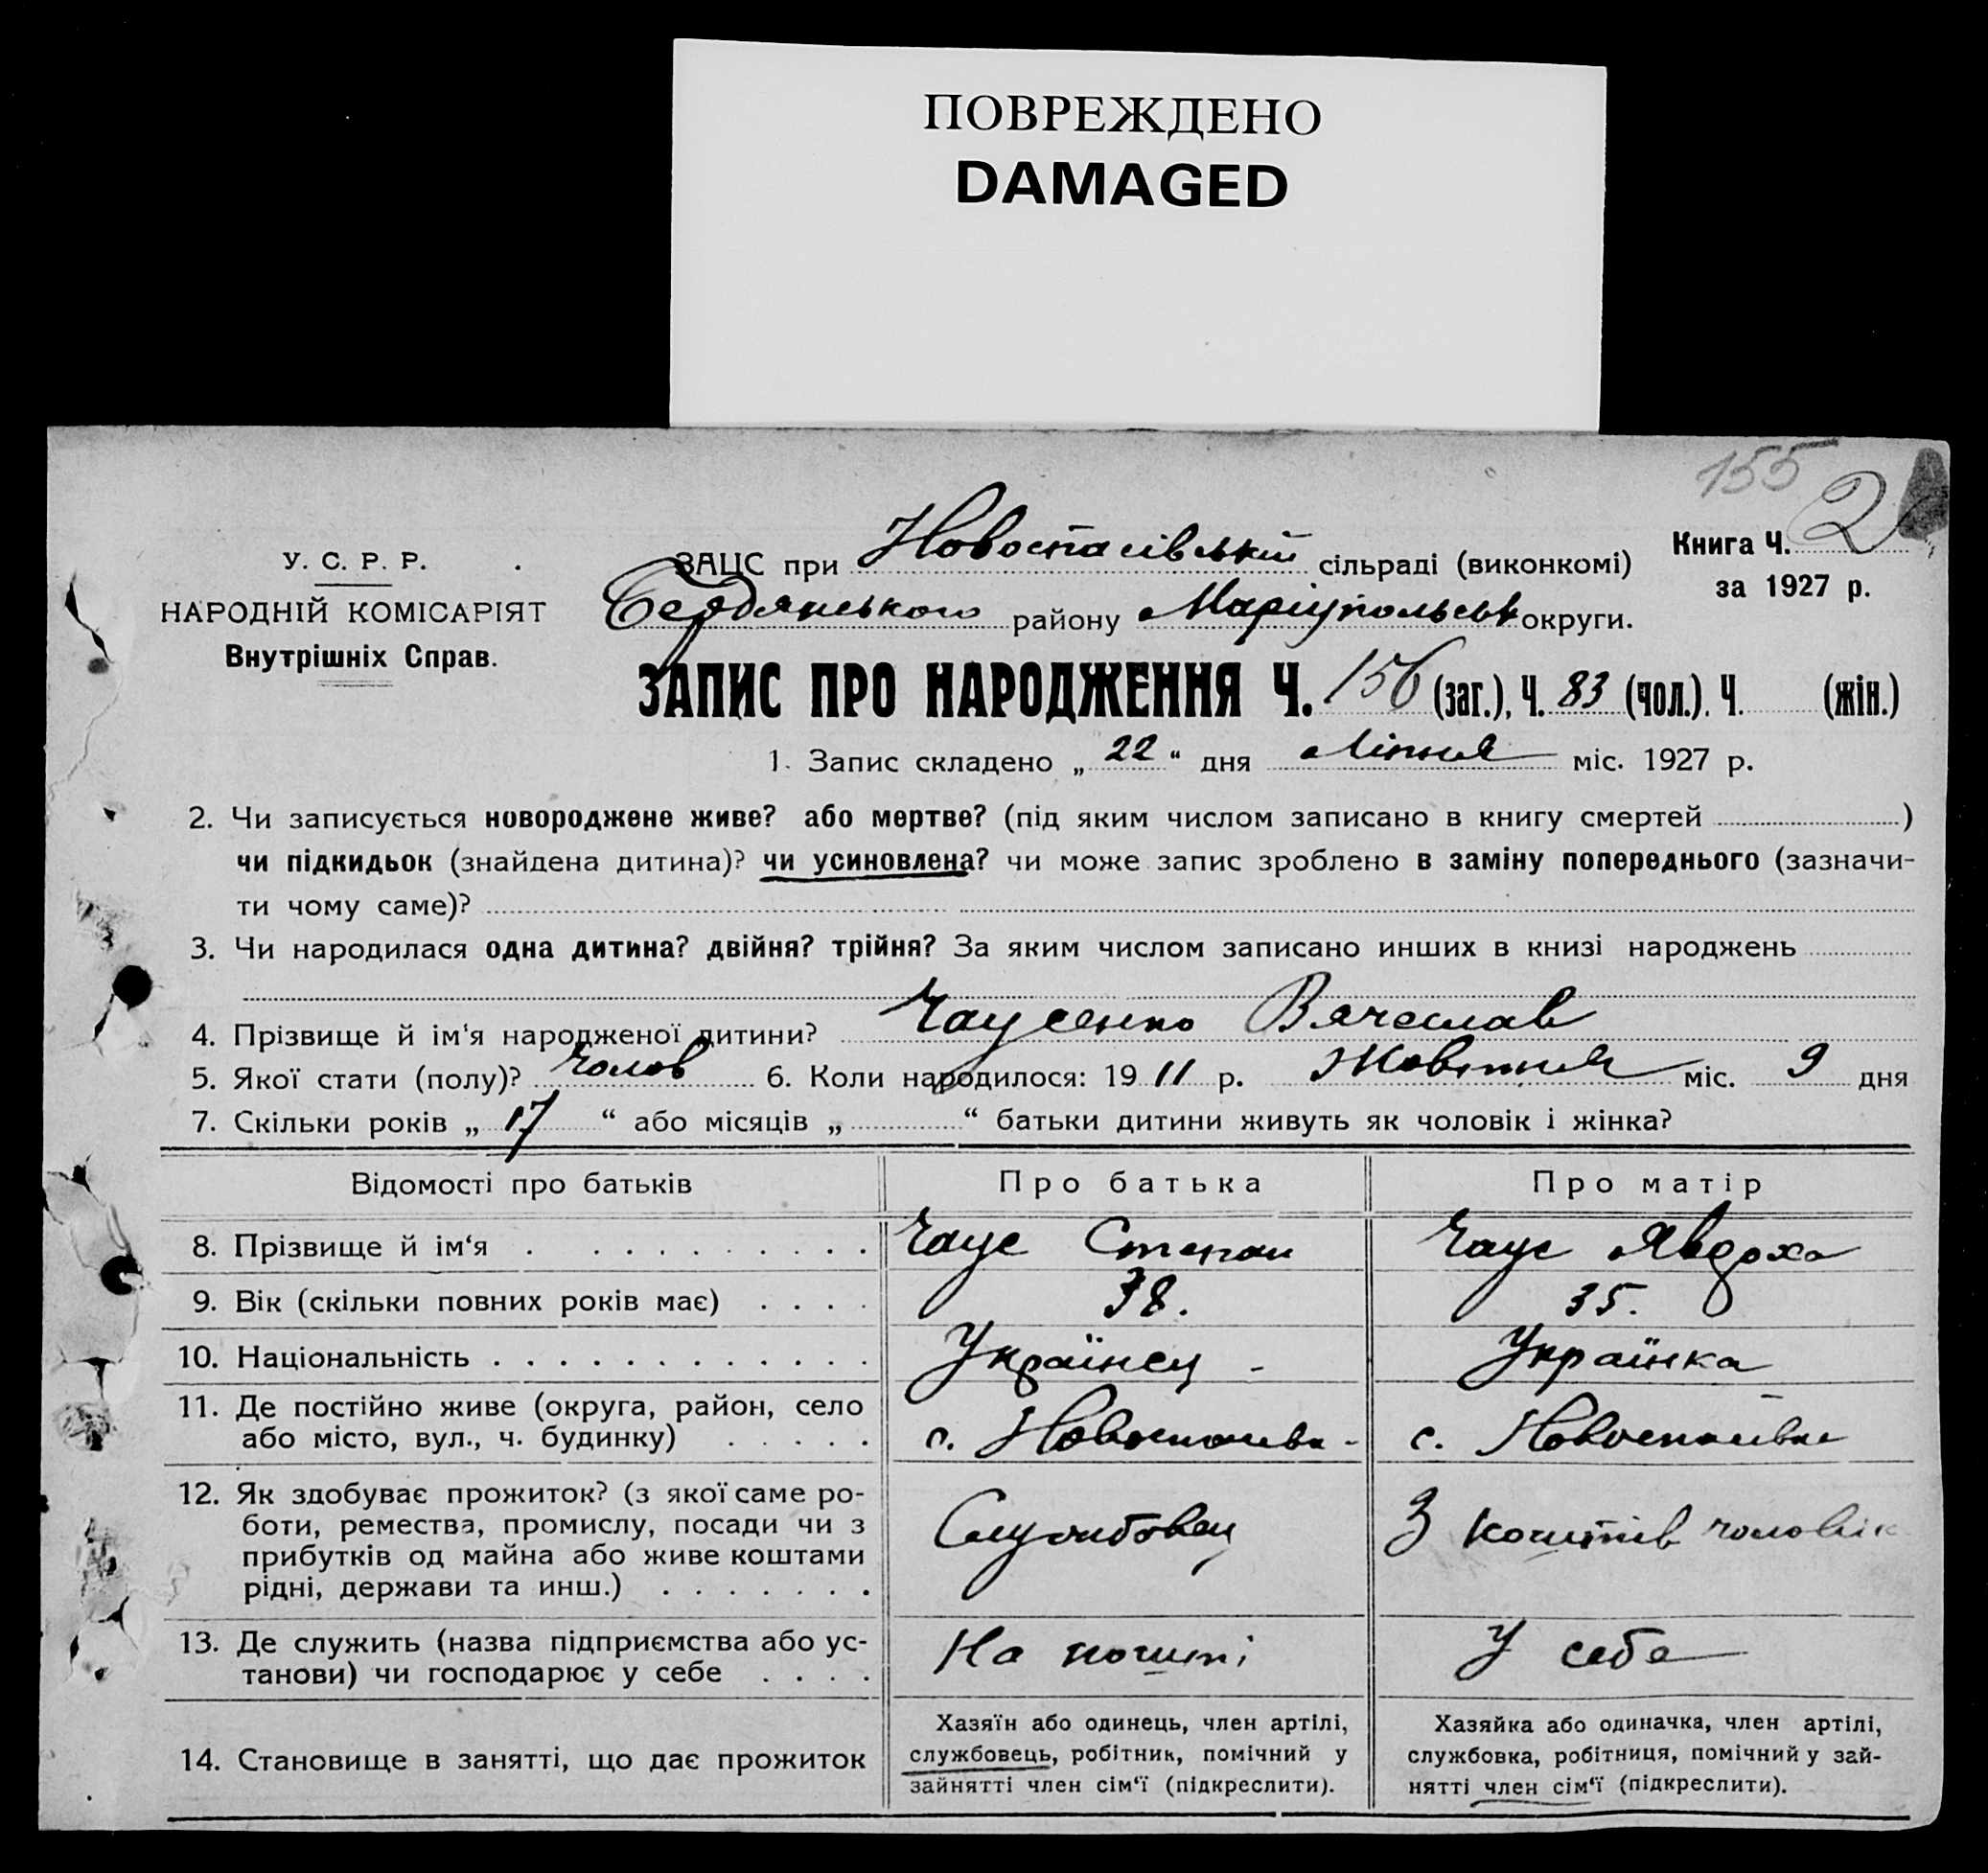 ПОВРЕЖДЕНО
DAMAGED
155
Книга Ч. 2
за 1927 р.
У. С. Р. Р.
НАРОДНІЙ КОМІСАРІЯТ
Внутрішніх Справ.
ЗАЦС при Новоспасівській сільраді (виконкомі)
Бердянського району Маріупольськ округи.
ЗАПИС ПРО НАРОДЖЕННЯ Ч. 156 (заг.), Ч. 83 (чол.). Ч. (жін.)
1. Запис складено „ 22 “ дня Липня міс. 1927 р.
2. Чи записується новороджене живе? або мертве? (під яким числом записано в книгу смертей )
чи підкидьок (знайдена дитина)? чи усиновлена? чи може запис зроблено в заміну попереднього (зазначи-
ти чому саме)?
3. Чи народилася одна дитина? двійня? трійня? За яким числом записано инших в книзі народжень
4. Прізвище й ім'я народженої дитини? Чаусенко Вячеслав
5. Якої стати (полу)? Чолов 6. Коли народилося: 19 11 р. Жовтня міс. 9 дня
7. Скільки років „ 17 “ або місяців „ “ батьки дитини живуть як чоловік і жінка?
Відомості про батьків Про батька Про матір
8. Прізвище й ім‘я Чаус Степан Чаус Явдоха
9. Вік (скільки повних років має) 38. 35.
10. Національність Українец - Українка
11. Де постійно живе (округа, район, село
або місто, вул., ч. будинку) с. Новоспасівка - с. Новоспасівка
12. Як здобуває прожиток? (з якої саме ро-
боти, ремества, промислу, посади чи з
прибутків од майна або живе коштами
рідні, держави та инш.) Службовец З коштів чоловік
13. Де служить (назва підприємства або ус-
танови) чи господарює у себе На пошті У себе
14. Становище в занятті, що дає прожиток
Хазяїн або одинець, член артілі,
службовець, робітник, помічний у
зайнятті член сім‘ї (підкреслити).
Хазяйка або одиначка, член артілі,
службовка, робітниця, помічний у зай-
нятті член сім‘ї (підкреслити).